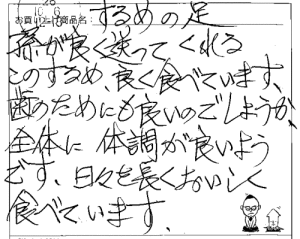 お買い上げ商品名: するめの足
が良く送ってくれる
このするめ、良く食べています、
歯のためにも良いのでしょうか、
全体に 体調が良いよう
です、日々を長くおいしく
食べています、